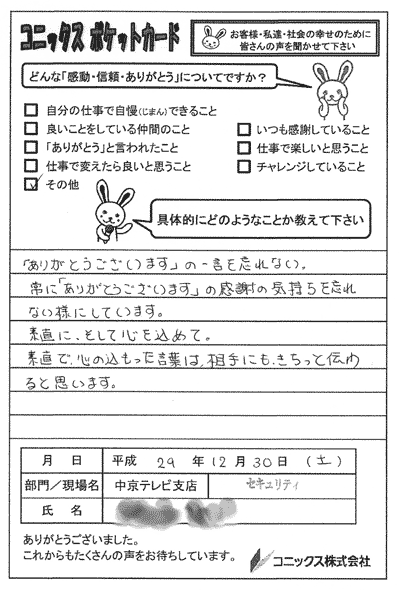 コニックス ポケットカード
お客様・私達・社会の幸せのために
皆さんの声を聞かせて下さい
どんな「感動・信頼・ありがとう」についてですか？
自分の仕事で自慢(じまん)できること
良いことをしている仲間のこと
いつも感謝していること
「ありがとう」と言われたこと
仕事で楽しいと思うこと
仕事で変えたら良いと思うこと
チャレンジしていること
その他
具体的にどのようなことか教えて下さい
「ありがとうございます」の一言を忘れない。
常に「ありがとうございます」の感謝の気持ちを忘れ
ない様にしています。
素直に、そして心を込めて。
素直で、心の込もった言葉は、相手にも、きちっと伝わ
ると思います。
月 日 平成 29 年 12 月 30 日 (土)
部門／現場名 中京テレビ支店 セキュリティ
氏 名
ありがとうございました。
これからもたくさんの声をお待ちしています。
コニックス株式会社